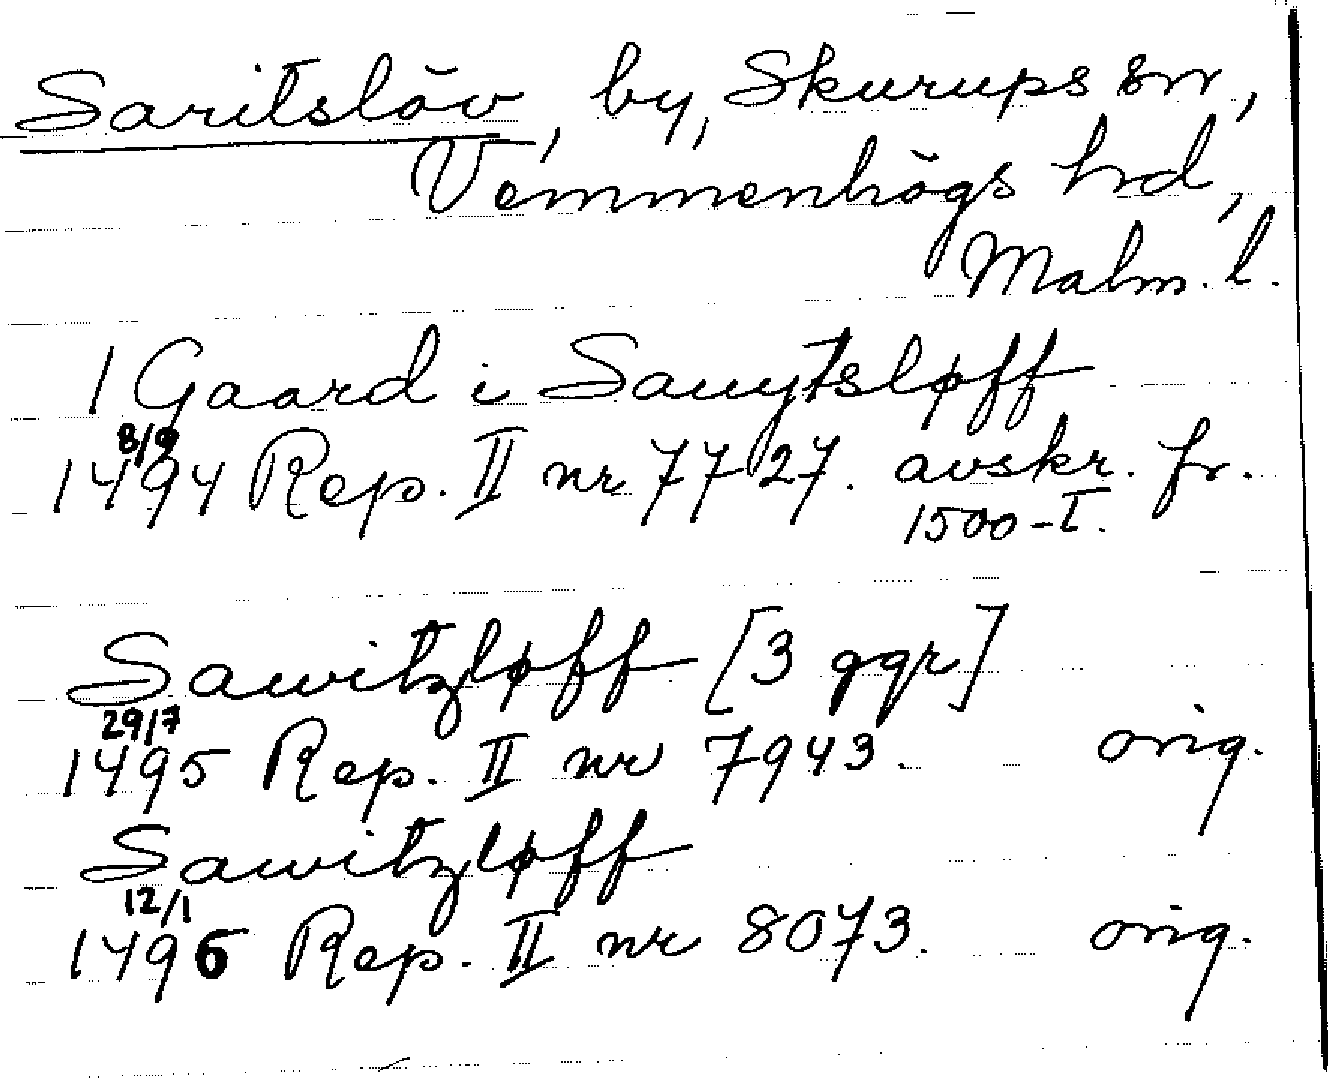 Saritslöv, by, Skurups sn,
Vemmenhögs hd,
Malm. l.
1 Gaard i Sauytsløff
8/9
1494 Rep. II nr 7727. avskr. fr.
1500-T.
Sawitzløff [3 ggr]
29/7
1495 Rep. II nr 7943. orig.
Sawitzløff
12/1
1496 Rep. II nr 8073. orig.